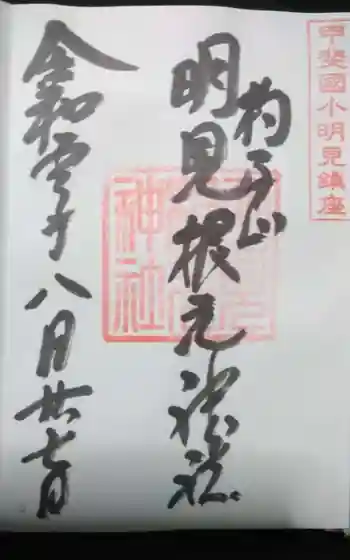 甲斐國小明見鎮座
杓子山
明見根元神社
神社
令和年八月廿七日